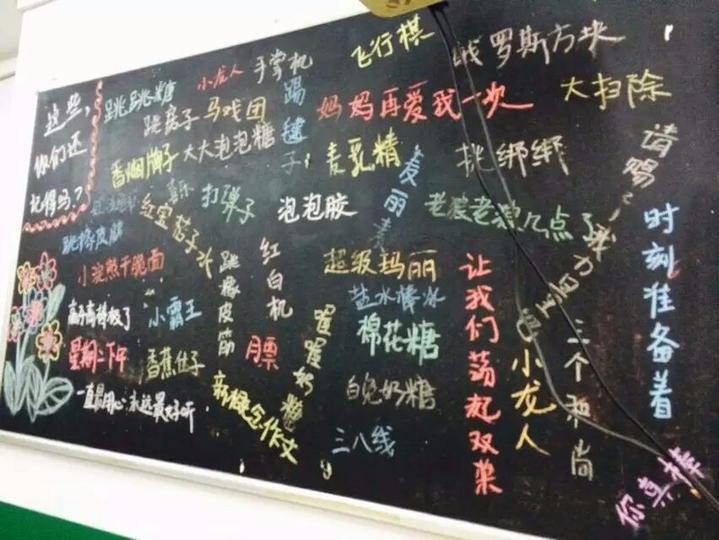 这些,
你们还
记得吗?
跳跳糖
小龙人
手掌机
飞行棋
俄罗斯方块
跳房子
马戏团
踢毽子
妈妈再爱我一次
大扫除
香烟牌子
大大泡泡糖
麦乳精
挑绑绑
请赐予我力量吧
打弹子
泡泡胶
麦丽素
老狼老狼几点了
时刻准备着
跳橡皮筋
红宝 茄子头
小浣熊干脆面
跳橡皮筋
红白机
超级玛丽
让我们荡起双桨
高乐高棒极了
小霸王
盐水棒冰
喔喔奶糖
棉花糖
星期二下午
香蕉位子
月票
白兔奶糖
小龙人
三个和尚
一直用心永远最好听
新概念作文
三八线
你真棒